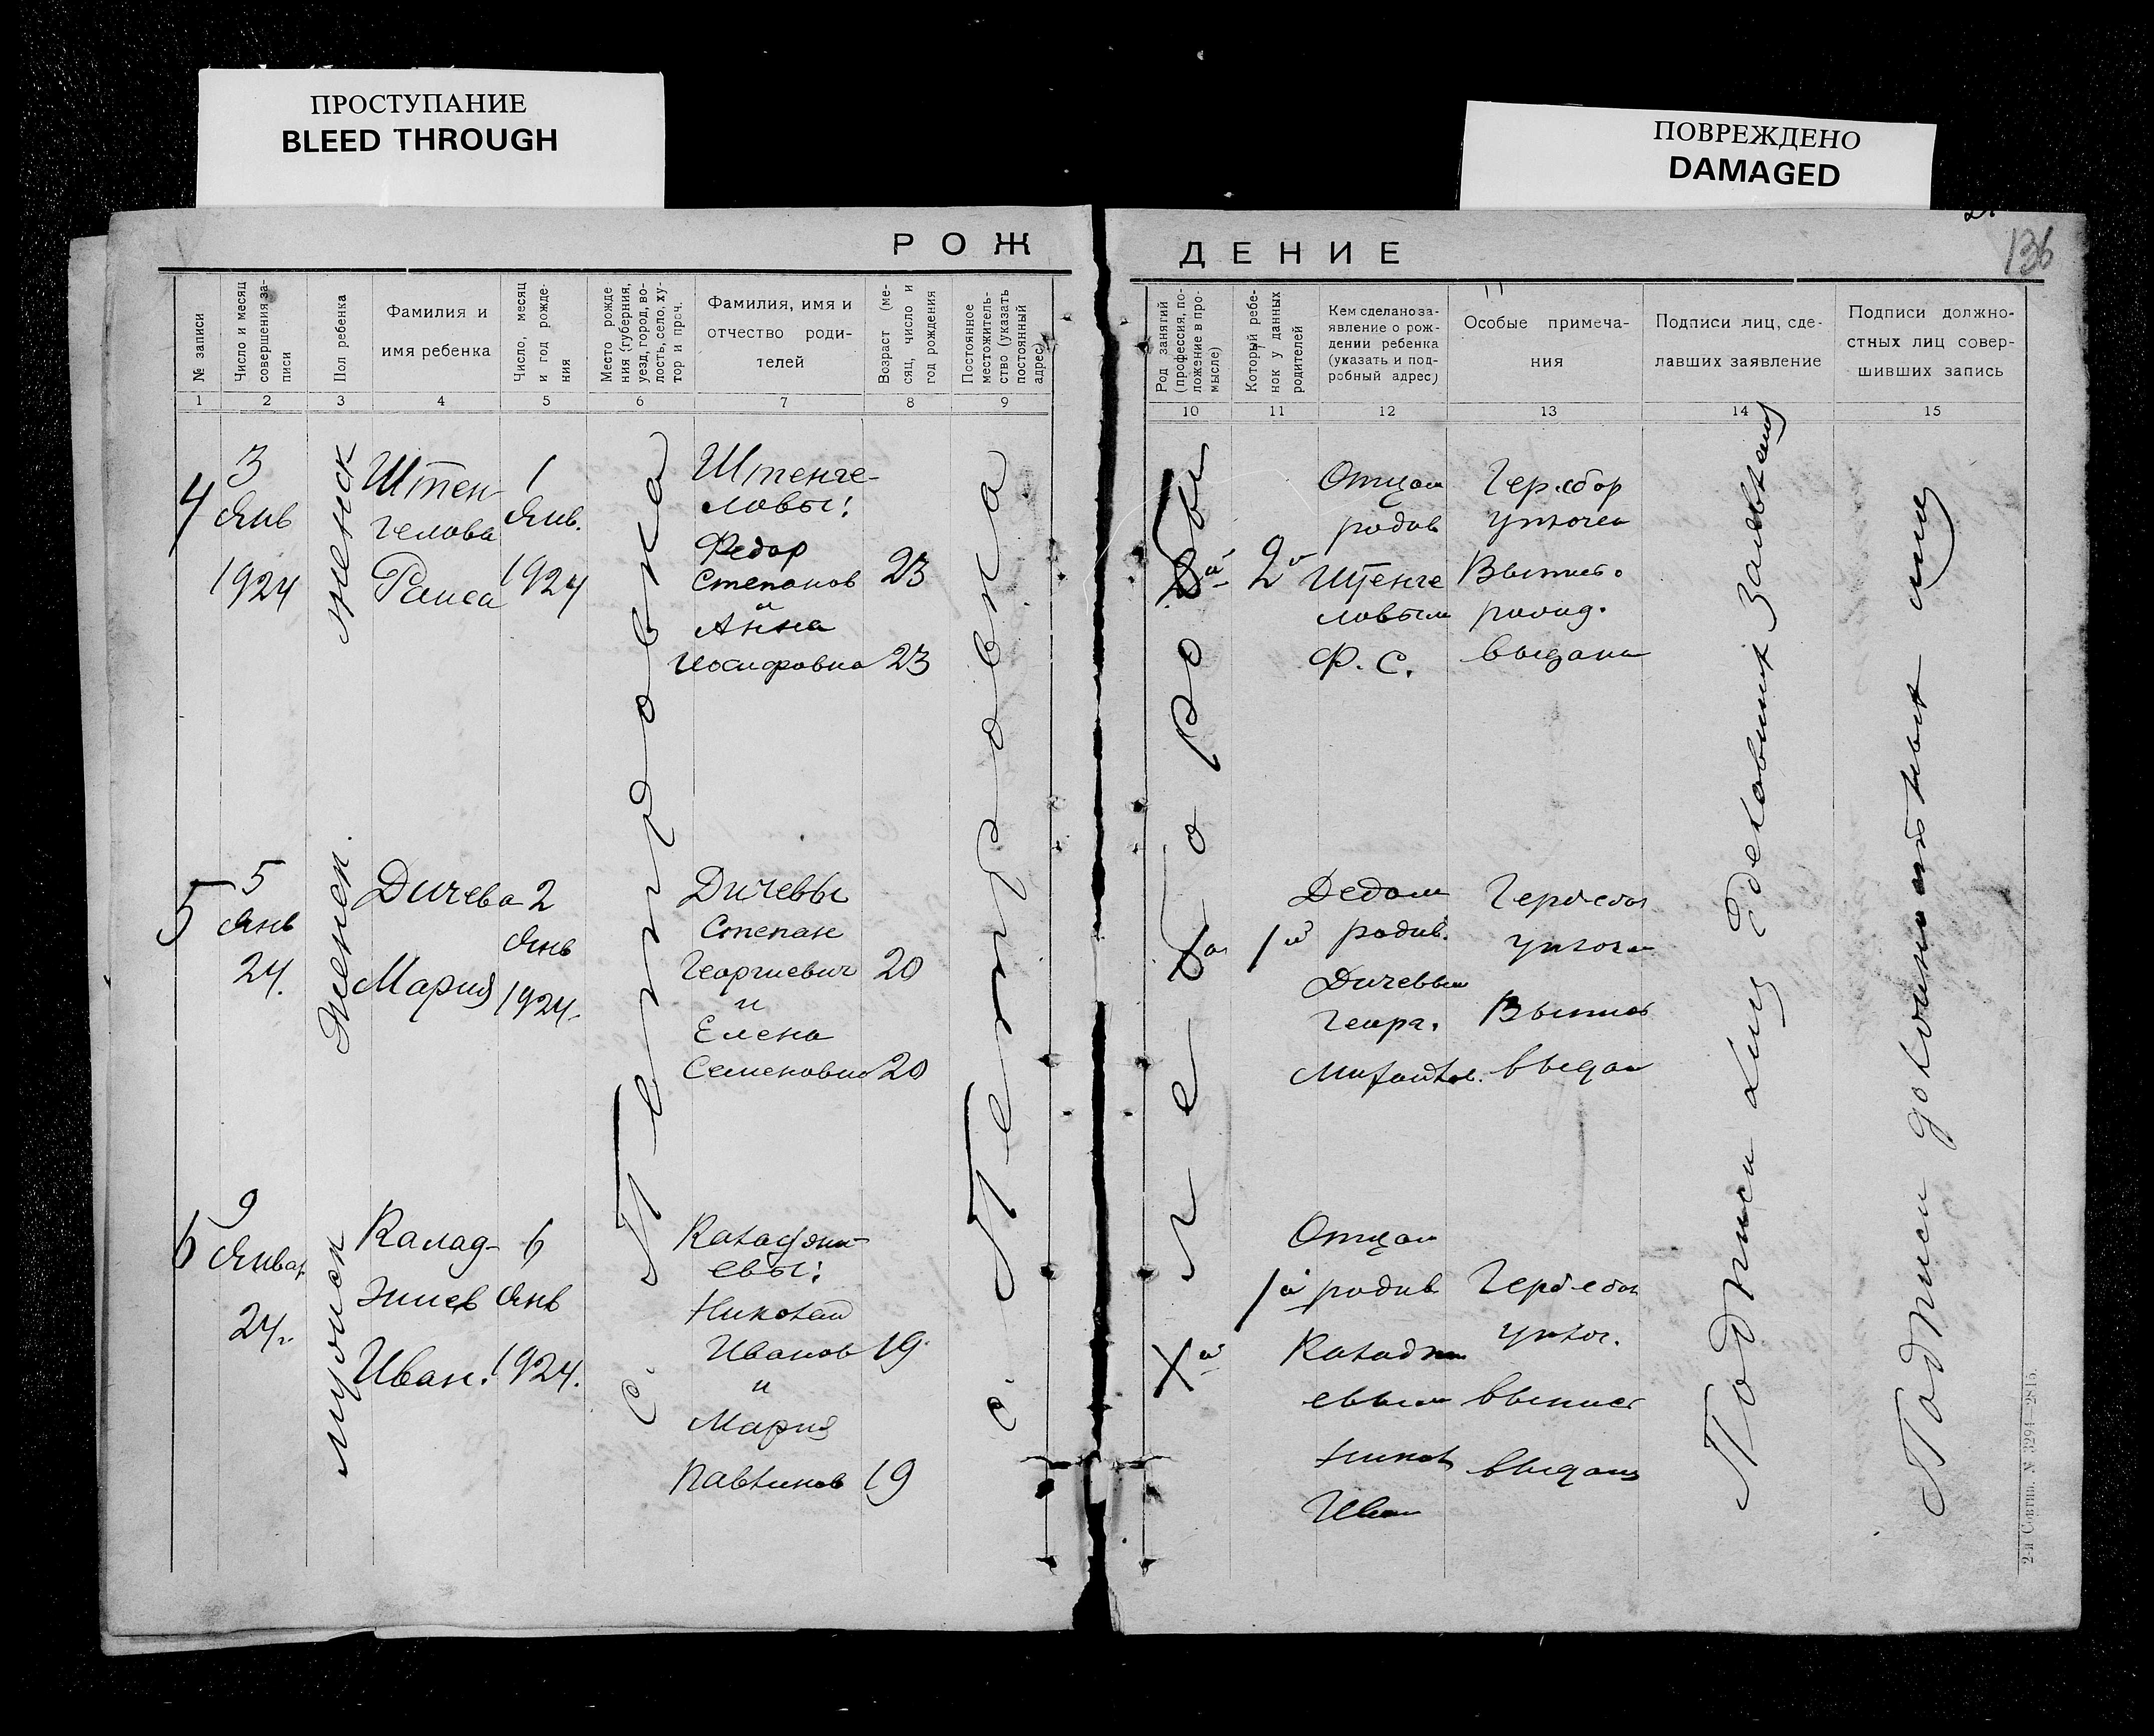 ПРОСТУПАНИЕ
BLEED THROUGH
ПОВРЕЖДЕНО
DAMAGED
136
РОЖ
ДЕНИЕ
№ записи
Число и месяц
совершения за-
писи
Пол ребенка
Фамилия и
имя ребенка
Число, месяц
и год рожде-
ния
Место рожде
ния (губерния,
уезд, город, во-
лость, село, ху-
тор и проч.
Фамилия, имя и
отчество роди-
телей
Возраст (ме-
сяц, число и
год рождения
Постоянное
местожитель-
ство (указать
постоянный
адрес)
Род занятий
(профессия, по-
ложение в про-
мысле)
Который ребе-
нок у данных
родителей
Кем сделано за-
явление о рож-
дении ребенка
(указать и под-
робный адрес)
Особые примеча-
ния
Подписи лиц, сде-
лавших заявление
Подписи должно-
стных лиц совер-
шивших запись
1 2 3 4 5 6 7 8 9
10 11 12 13 14 15
4
3
Янв
1924
женск
Штен-
гелова
Раиса
1
Янв.
1924
Штенге-
ловы:
Федор
Степанов
и
Анна
Иосифовна
23
23
2й
Отцом
родив
Штенге
ловым
Ф. С.
Герб сбор
уплочен
Выпис.
выдана
5
5
Янв
24.
Женск.
Дичева
Мария
2
Янв
1924.
Дичевы
Степан
Георгиевич
и
Елена
Семеновна
20
20
1й
Дедом
родив.
Дичевым
Геор.
Герб сбор
уплочен
Выпис
выдан
6
9
Январ
24г.
мужск
Калад-
жиев
Иван.
6
Янв
1924.
Каладжи-
евы:
Николай
Иванов
и
Мария
Павлинов
19
19
1й
Отцом
родив
Каладжи
евым
Никол
Иван
Герб сбор
уплоч.
выпис
выдана
с. Петровка
с. Петровка
Хлеборобы
Подписи лиц сделавших заявление
Подписи должностных лиц
2-я Совтип. № 3294—2815.